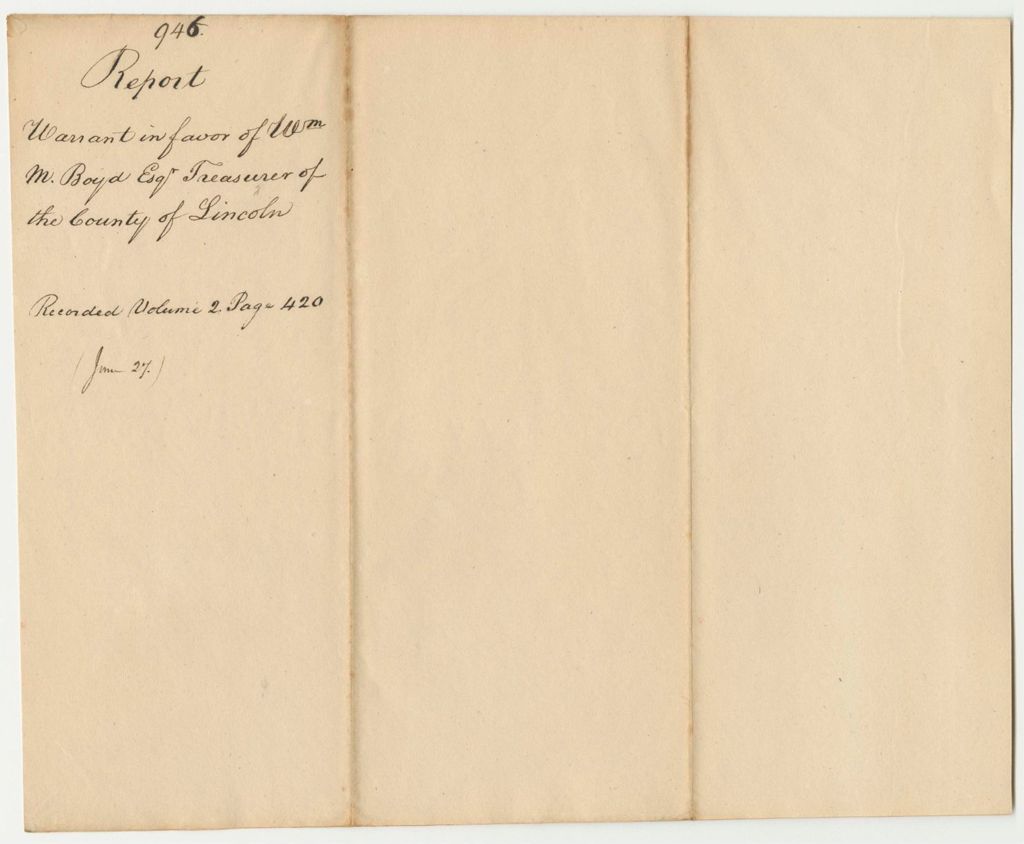 946.
Report
Warrant in favor of Wm
M. Boyd Esqr Treasurer of
the County of Lincoln
Recorded Volume 2 Page 420
(June 27.)